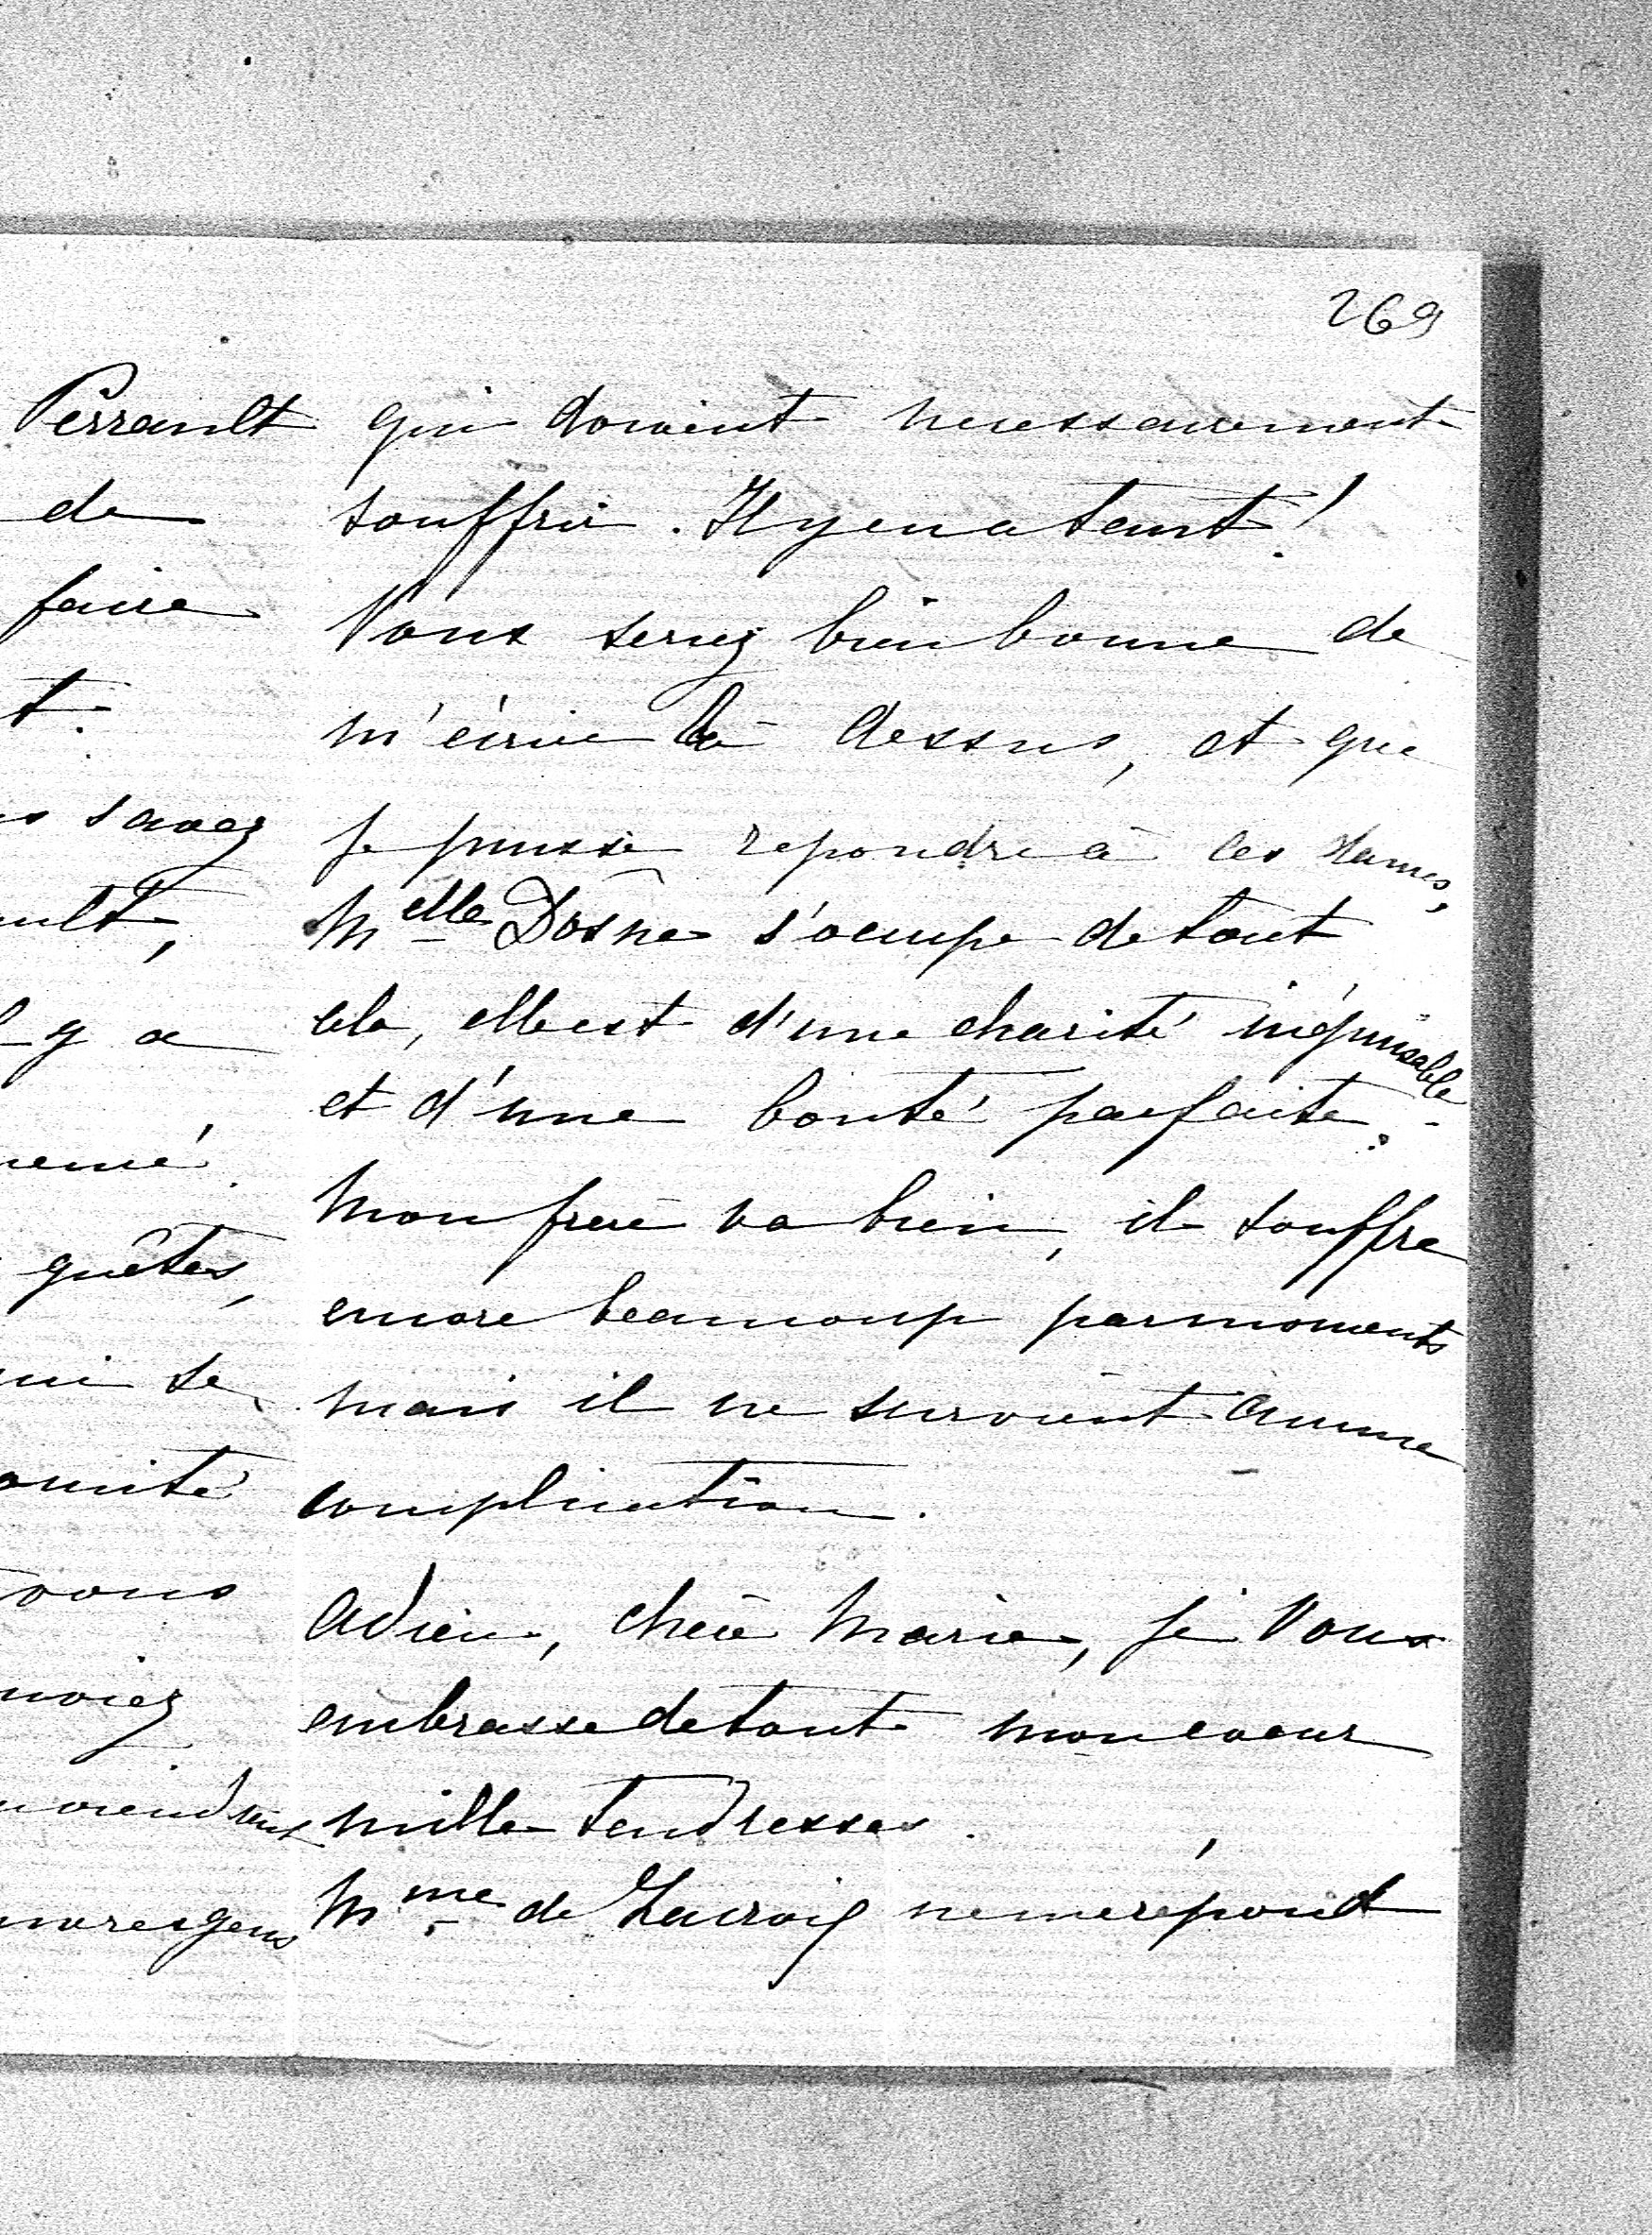 269
Perrault
de
faire
t.
s savez
ult,
l y a
quêtes,
ui se
omité
vous
qui doivent necessairement
souffrir. Il y en a tant !
Vous seriez bien bonne de
m'écrire là dessus, et que
je puisse repondre à ces dames,
Melle Dosne s'occupe de tout
cela, elle est d'une charité inépuisable
et d'une bonté parfaite.
Mon frere va bien, il souffre
encore beaucoup par moments
mais il ne survient aucune
complication.
Adieu, chère Marie, je vous
embrasse de tout mon coeur
mille tendresses.
Mme de Lacroix ne me répond